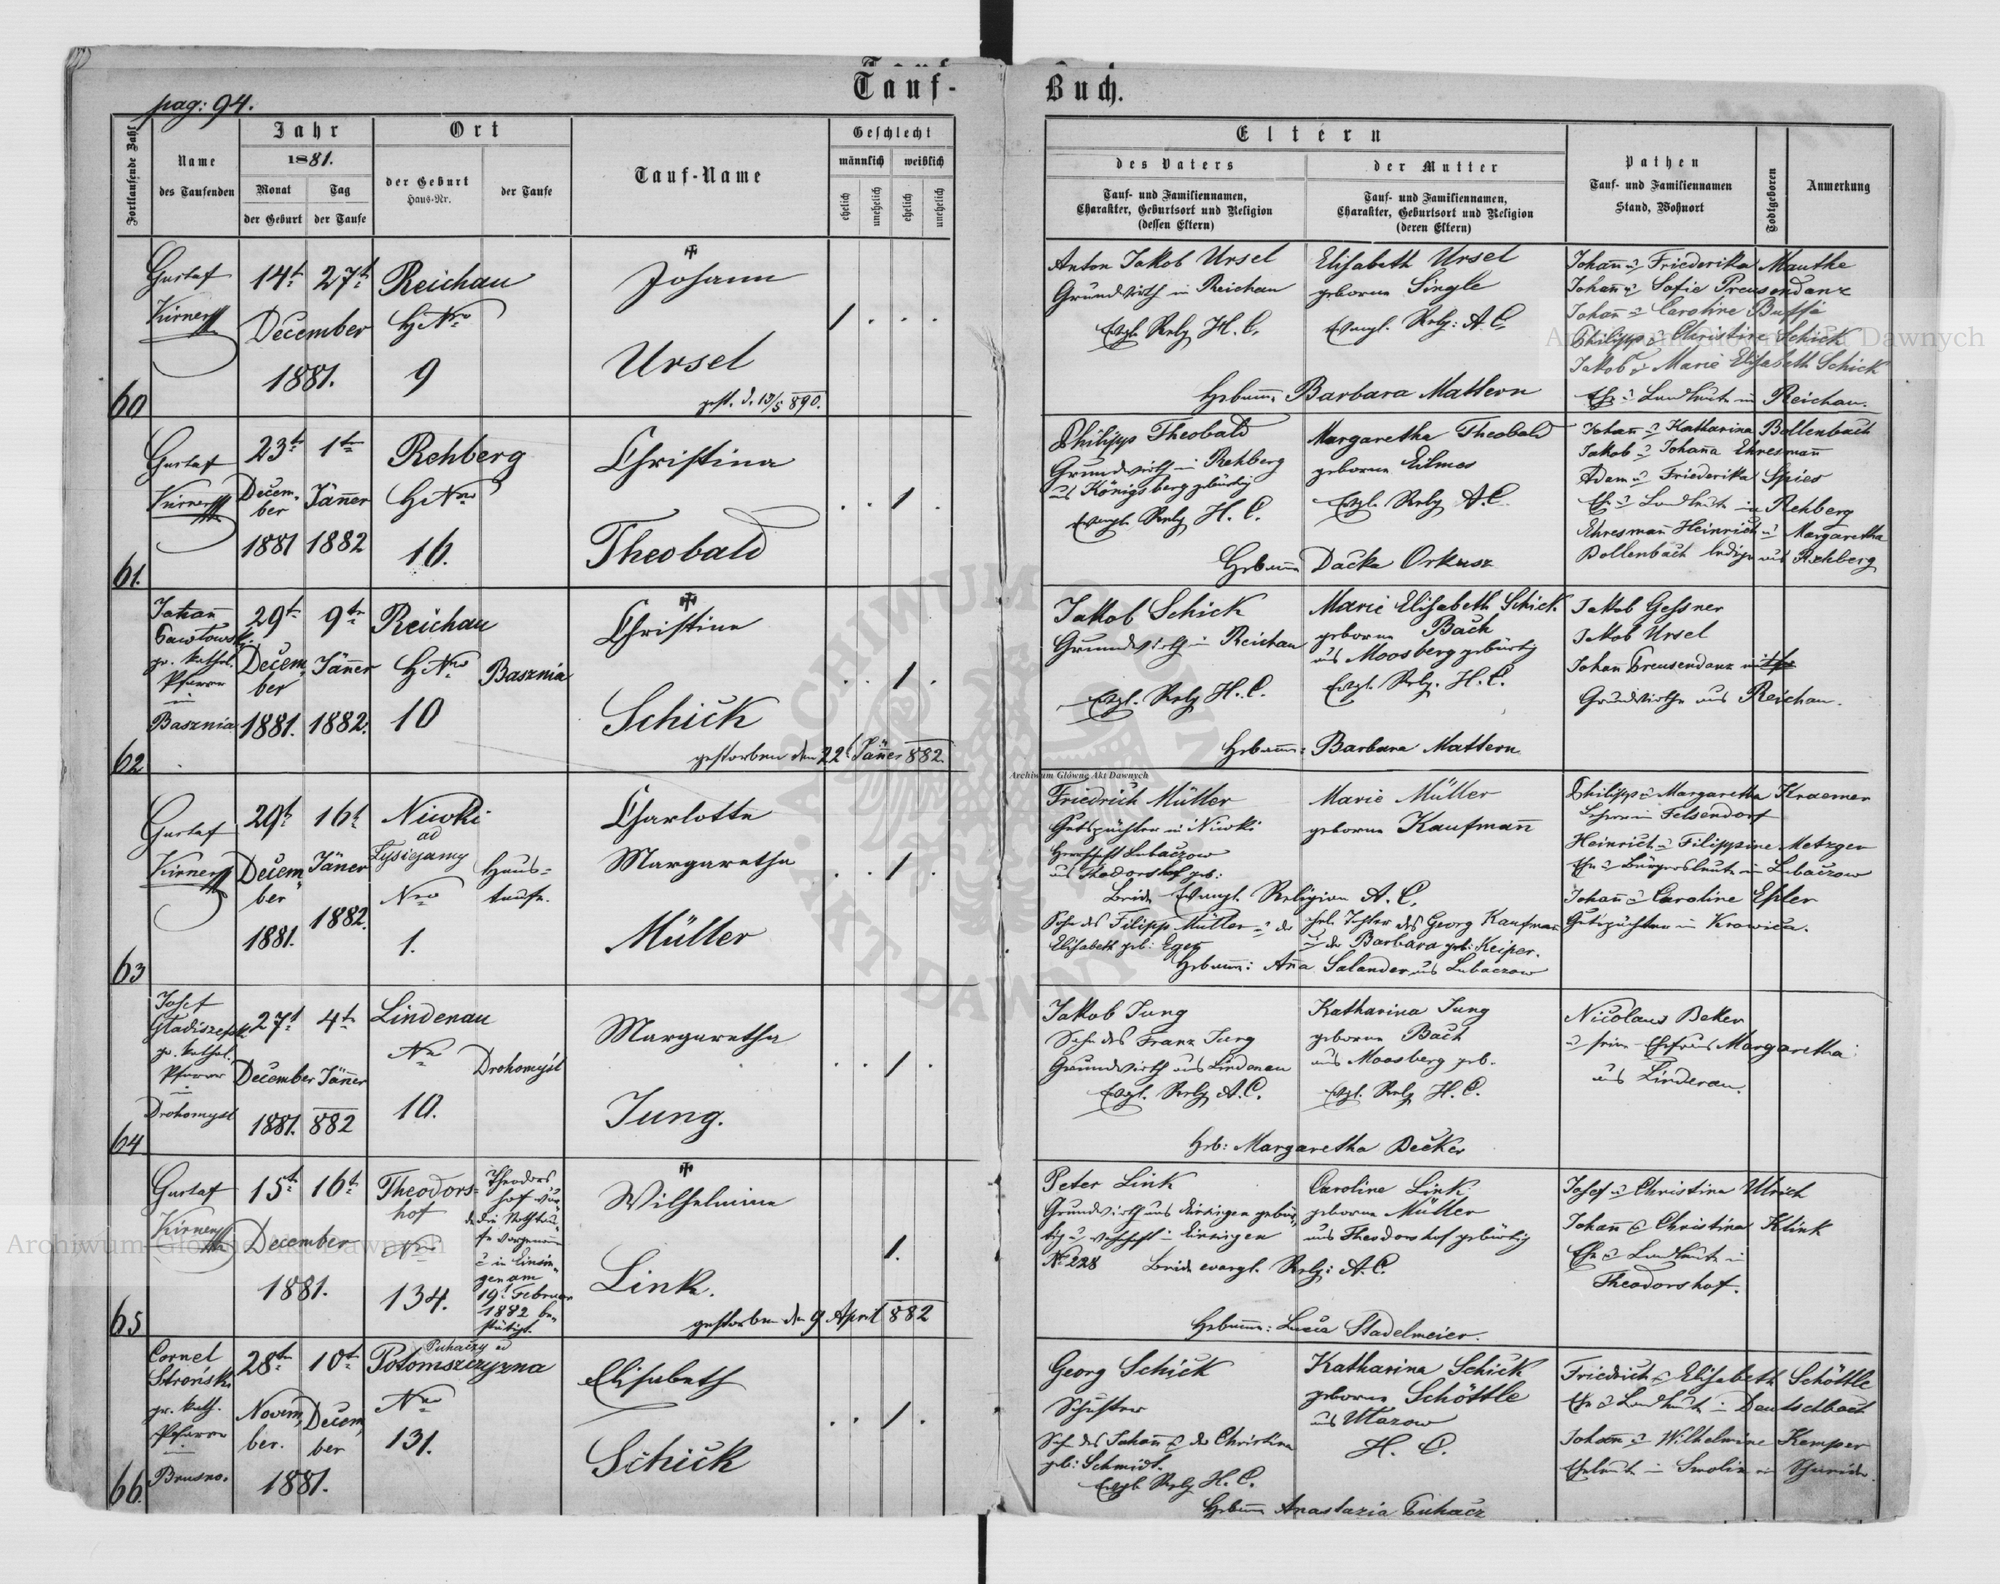 Tauf-Buch.
pag: 94.
Fortlaufende Zahl
Name
des Taufenden
Jahr
1881.
Monat
der Geburt
Tag
der Taufe
Ort
der Geburt
Haus-Nr.
der Taufe
Tauf-Name
Geschlecht
männlich
weiblich
ehelich
unehelich
ehelich
unehelich
Eltern
des Vaters
Tauf- und Familiennamen,
Charakter, Geburtsort und Religion
(dessen Eltern)
der Mutter
Tauf- und Familiennamen,
Charakter, Geburtsort und Religion
(deren Eltern)
Pathen
Tauf- und Familiennamen
Stand, Wohnort
Todtgeboren
Anmerkung
60
Gustaf
Kirner
14t 27t
December
1881.
Reichau
H Nro
9
Johann
Ursel
gest. d. 13/5 890.
1
Anton Jakob Ursel
Grundwirth in Reichau
Evgl. Relg H. C.
Elisabeth Ursel
geborne Single
Evangl. Relg: A. C.
Hebamm Barbara Mattern
Johann u Friederika Mauthe
Johann u Sofie Preusendanz
Johann u Caroline
Philipp u Christine Schick
Jakob u Marie Elisabeth Schick
Ehe u Landleute in Reichau.
61.
Gustaf
Kirner
23t
Decem-
ber
1881
1t
Jänner
1882
Rehberg
H Nro
16.
Christina
Theobald
1
Philipp Theobald
Grundwirth in Rehberg
aus Königsberg gebürtig
Evangl. Relg H. C.
Margaretha Theobald
geborne Eilmes
Evgl. Relg A. C.
Hebamm Dacka Orkusz
Johann u Katharina Bollenbach
Jakob u Johanna Ehresmann
Adam u Friederika Spies
Ehe u Landleute in Rehberg
Ehresman Heinrich u Margaretha
Bollenbach ledige aus Rehberg
62
Johann
gr. kathol.
Pfarrer
in
Basznia
29t
Decem
ber
1881.
9t
Jänner
1882.
Reichau
H Nro
10
Basznia
Christine
Schick
gestorben den 22t Jänner 882.
1
Jakob Schick
Grundwirth in Reichau
Evgl. Relg H. C.
Marie Elisabeth Schick
geborne Bach
aus Moosberg gebürtig
Evgl. Relg. H. C.
Hebamm: Barbara Mattern
Jakob Gessner
Jakob Ursel
Johan Preusendanz
Grundwirthe aus Reichau.
63
Gustaf
Kirner
29t
Decem
ber
1881.
16t
Jäner
1882.
Niwki
ad
Łysiejamy
Nro
1.
Haus-
taufe.
Charlotte
Margaretha
Müller
1
Friedrich Müller
Gutspächter in Niwki
Herrschaft Lubaczow
aus Theodorshof geb:
Marie Müller
geborne Kaufmann
Beide Evangl. Religion A. C.
Sohn des Filipp Müller u der
Elisabeth geb:
ehel. Tochter des Georg Kaufmann
u der Barbara geb: Keiper.
Hebamm: Anna Salander aus Lubaczow
Philipp u Margaretha Kraemer
Lehrer in Felsendorf
Heinrich u Filippine Metzger
Ehe u Bürgersleute in Lubaczow
Johann u Caroline Epler
Gutspächter in Krowica.
64
Josef
gr. kathol.
Pfarrer
in
Drohomysl
27t
December
1881.
4t
Jänner
882
Lindenau
Nro
10.
Drohomyśl
Margaretha
Jung.
1
Jakob Jung
Sohn des Franz Jung
Grundwirth aus Lindenau
Evgl. Relg A. C.
Katharina Jung
geborne Bach
aus Moosberg geb.
Evgl. Relg H. C.
Heb: Margaretha Decker
Nicolaus Beker
u seine Ehefrau Margaretha
aus Lindenau.
65
Gustaf
Kirner
15t 16t
December
1881.
Theodors-
hof
Nro
134.
Theodors
hof wur-
de die Nothtau-
fe vorgenomm
u in Einsin-
gen am
19t Februar
1882 be-
stätigt.
Wilhelmine
Link.
gestorben den 9 April 882
1.
Peter Link
Grundwirth aus Einsingen gebür-
tig u wohnhaft in Einsingen
No 228
Caroline Link
geborne Müller
aus Theodorshof gebürtig
Beide evangl. Relg: A. C.
Hebamm: Lucia Stadelmeier.
Josef u Christina Ulrich
Johann u Christina Klink
Ehe u Landleute in
Theodorshof.
66.
Cornel
Stroński
gr. kath.
Pfarrer
in
Brusno.
28t
Novem,
ber.
10t
Decem,
ber
1881.
Puhaczy ad
Potomszczyzna
Nro
131.
Elisabeth
Schick
1
Georg Schick
Schuster
Sohn des Johann u der Christina
geb: Schmidt.
Evgl. Relg H. C.
Katharina Schick
geborne Schöttle
aus Utazow
H. C.
Hebamm Anastazia Puhacz
Friedrich u Elisabeth Schöttle
Ehe u Landleute in Deutschbach
Johann u Wilhelmine Kemper
Eheleute in Smolin
Archiwum Główne Akt Dawnych
Archiwum Główne Akt Dawnych
Archiwum Główne Akt Dawnych